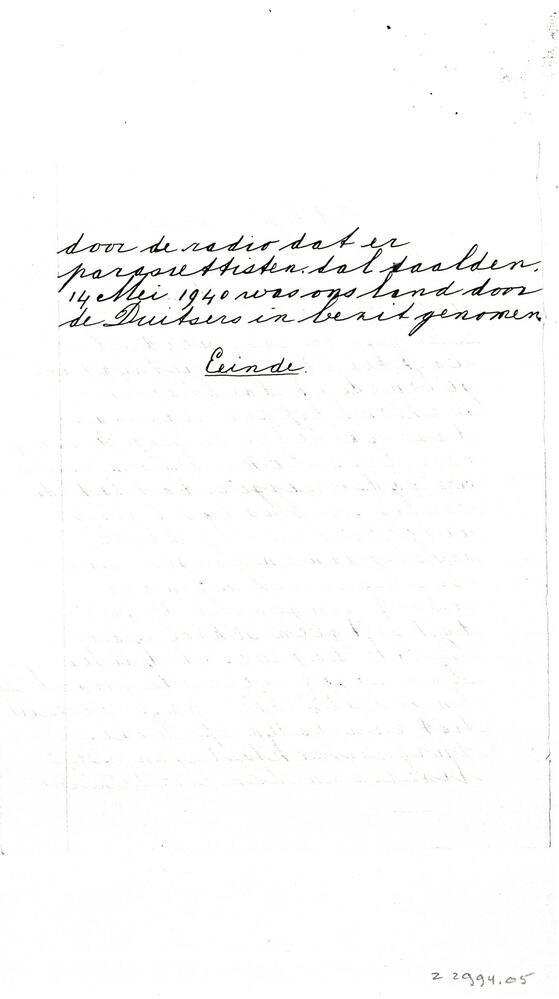 door de radio dat er
parasiettisten. dal daalden.
14 Mei 1940 was ons land door
de Duitsers in bezit genomen.
Eeinde.
z 2994.05